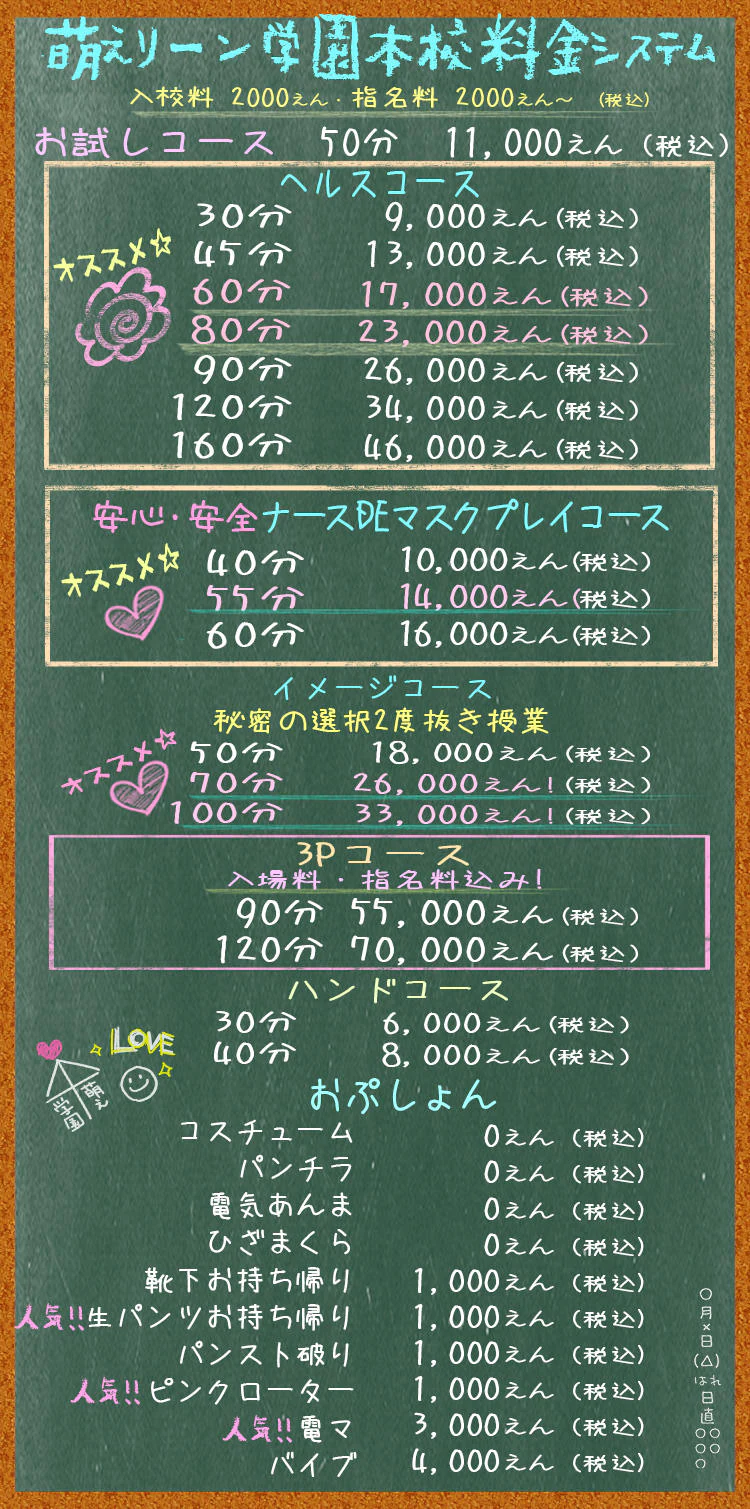 萌えリーン学園本校料金システム
入校料 2000えん・指名料 2000えん～ (税込)
お試しコース 50分 11,000えん (税込)
ヘルスコース
30分 9,000えん(税込)
45分 13,000えん(税込)
オススメ☆
60分 17,000えん(税込)
80分 23,000えん(税込)
90分 26,000えん(税込)
120分 34,000えん(税込)
160分 46,000えん(税込)
安心・安全ナースDEマスクプレイコース
オススメ☆
40分 10,000えん(税込)
55分 14,000えん(税込)
60分 16,000えん(税込)
イメージコース
秘密の選択2度抜き授業
オススメ☆
50分 18,000えん(税込)
70分 26,000えん!(税込)
100分 33,000えん!(税込)
3Pコース
入場料・指名料込み!
90分 55,000えん(税込)
120分 70,000えん(税込)
ハンドコース
30分 6,000えん(税込)
40分 8,000えん(税込)
LOVE
萌え
学園
おぷしょん
コスチューム 0えん (税込)
パンチラ 0えん (税込)
電気あんま 0えん (税込)
ひざまくら 0えん (税込)
靴下お持ち帰り 1,000えん (税込)
人気!!生パンツお持ち帰り 1,000えん (税込)
パンスト破り 1,000えん (税込)
人気!!ピンクローター 1,000えん (税込)
人気!!電マ 3,000えん (税込)
バイブ 4,000えん (税込)
○月×日(△)はれ
日直
○○○
○○